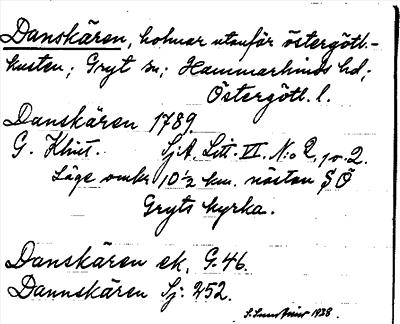 Danskären, holmar utanför östergötl.-
kusten; Gryt sn; Hammarkinds hd,
Östergötl. l.
Danskären 1789.
G. Klint. Sj.A. Litt. VI. N:o 2, 1 o. 2.
Läge omkr. 10½ km. nästan S Ö
Gryts kyrka.
Danskären ek. G. 46.
Dannskären Sj: 252.
1938